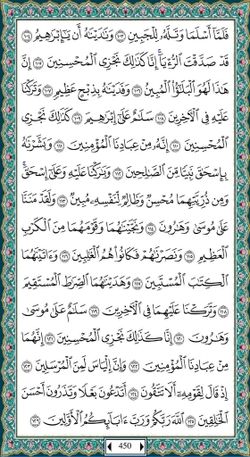 فَلَمَّآ أَسْلَمَا وَتَلَّهُۥ لِلْجَبِينِ ١٠٣ وَنَٰدَيْنَٰهُ أَن يَٰٓإِبْرَٰهِيمُ ١٠٤
قَدْ صَدَّقْتَ ٱلرُّءْيَآ إِنَّا كَذَٰلِكَ نَجْزِى ٱلْمُحْسِنِينَ ١٠٥ إِنَّ
هَٰذَا لَهُوَ ٱلْبَلَٰٓؤُا۟ ٱلْمُبِينُ ١٠٦ وَفَدَيْنَٰهُ بِذِبْحٍ عَظِيمٍ ١٠٧ وَتَرَكْنَا
عَلَيْهِ فِى ٱلْءَاخِرِينَ ١٠٨ سَلَٰمٌ عَلَىٰٓ إِبْرَٰهِيمَ ١٠٩ كَذَٰلِكَ نَجْزِى
ٱلْمُحْسِنِينَ ١١٠ إِنَّهُۥ مِنْ عِبَادِنَا ٱلْمُؤْمِنِينَ ١١١ وَبَشَّرْنَٰهُ
بِإِسْحَٰقَ نَبِيًّا مِّنَ ٱلصَّٰلِحِينَ ١١٢ وَبَٰرَكْنَا عَلَيْهِ وَعَلَىٰٓ إِسْحَٰقَ
وَمِن ذُرِّيَّتِهِمَا مُحْسِنٌ وَظَالِمٌ لِّنَفْسِهِۦ مُبِينٌ ١١٣ وَلَقَدْ مَنَنَّا
عَلَىٰ مُوسَىٰ وَهَٰرُونَ ١١٤ وَنَجَّيْنَٰهُمَا وَقَوْمَهُمَا مِنَ ٱلْكَرْبِ
ٱلْعَظِيمِ ١١٥ وَنَصَرْنَٰهُمْ فَكَانُوا۟ هُمُ ٱلْغَٰلِبِينَ ١١٦ وَءَاتَيْنَٰهُمَا
ٱلْكِتَٰبَ ٱلْمُسْتَبِينَ ١١٧ وَهَدَيْنَٰهُمَا ٱلصِّرَٰطَ ٱلْمُسْتَقِيمَ
١١٨ وَتَرَكْنَا عَلَيْهِمَا فِى ٱلْءَاخِرِينَ ١١٩ سَلَٰمٌ عَلَىٰ مُوسَىٰ
وَهَٰرُونَ ١٢٠ إِنَّا كَذَٰلِكَ نَجْزِى ٱلْمُحْسِنِينَ ١٢١ إِنَّهُمَا
مِنْ عِبَادِنَا ٱلْمُؤْمِنِينَ ١٢٢ وَإِنَّ إِلْيَاسَ لَمِنَ ٱلْمُرْسَلِينَ ١٢٣
إِذْ قَالَ لِقَوْمِهِۦٓ أَلَا تَتَّقُونَ ١٢٤ أَتَدْعُونَ بَعْلًا وَتَذَرُونَ أَحْسَنَ
ٱلْخَٰلِقِينَ ١٢٥ ٱللَّهَ رَبَّكُمْ وَرَبَّ ءَابَآئِكُمُ ٱلْأَوَّلِينَ ١٢٦
450